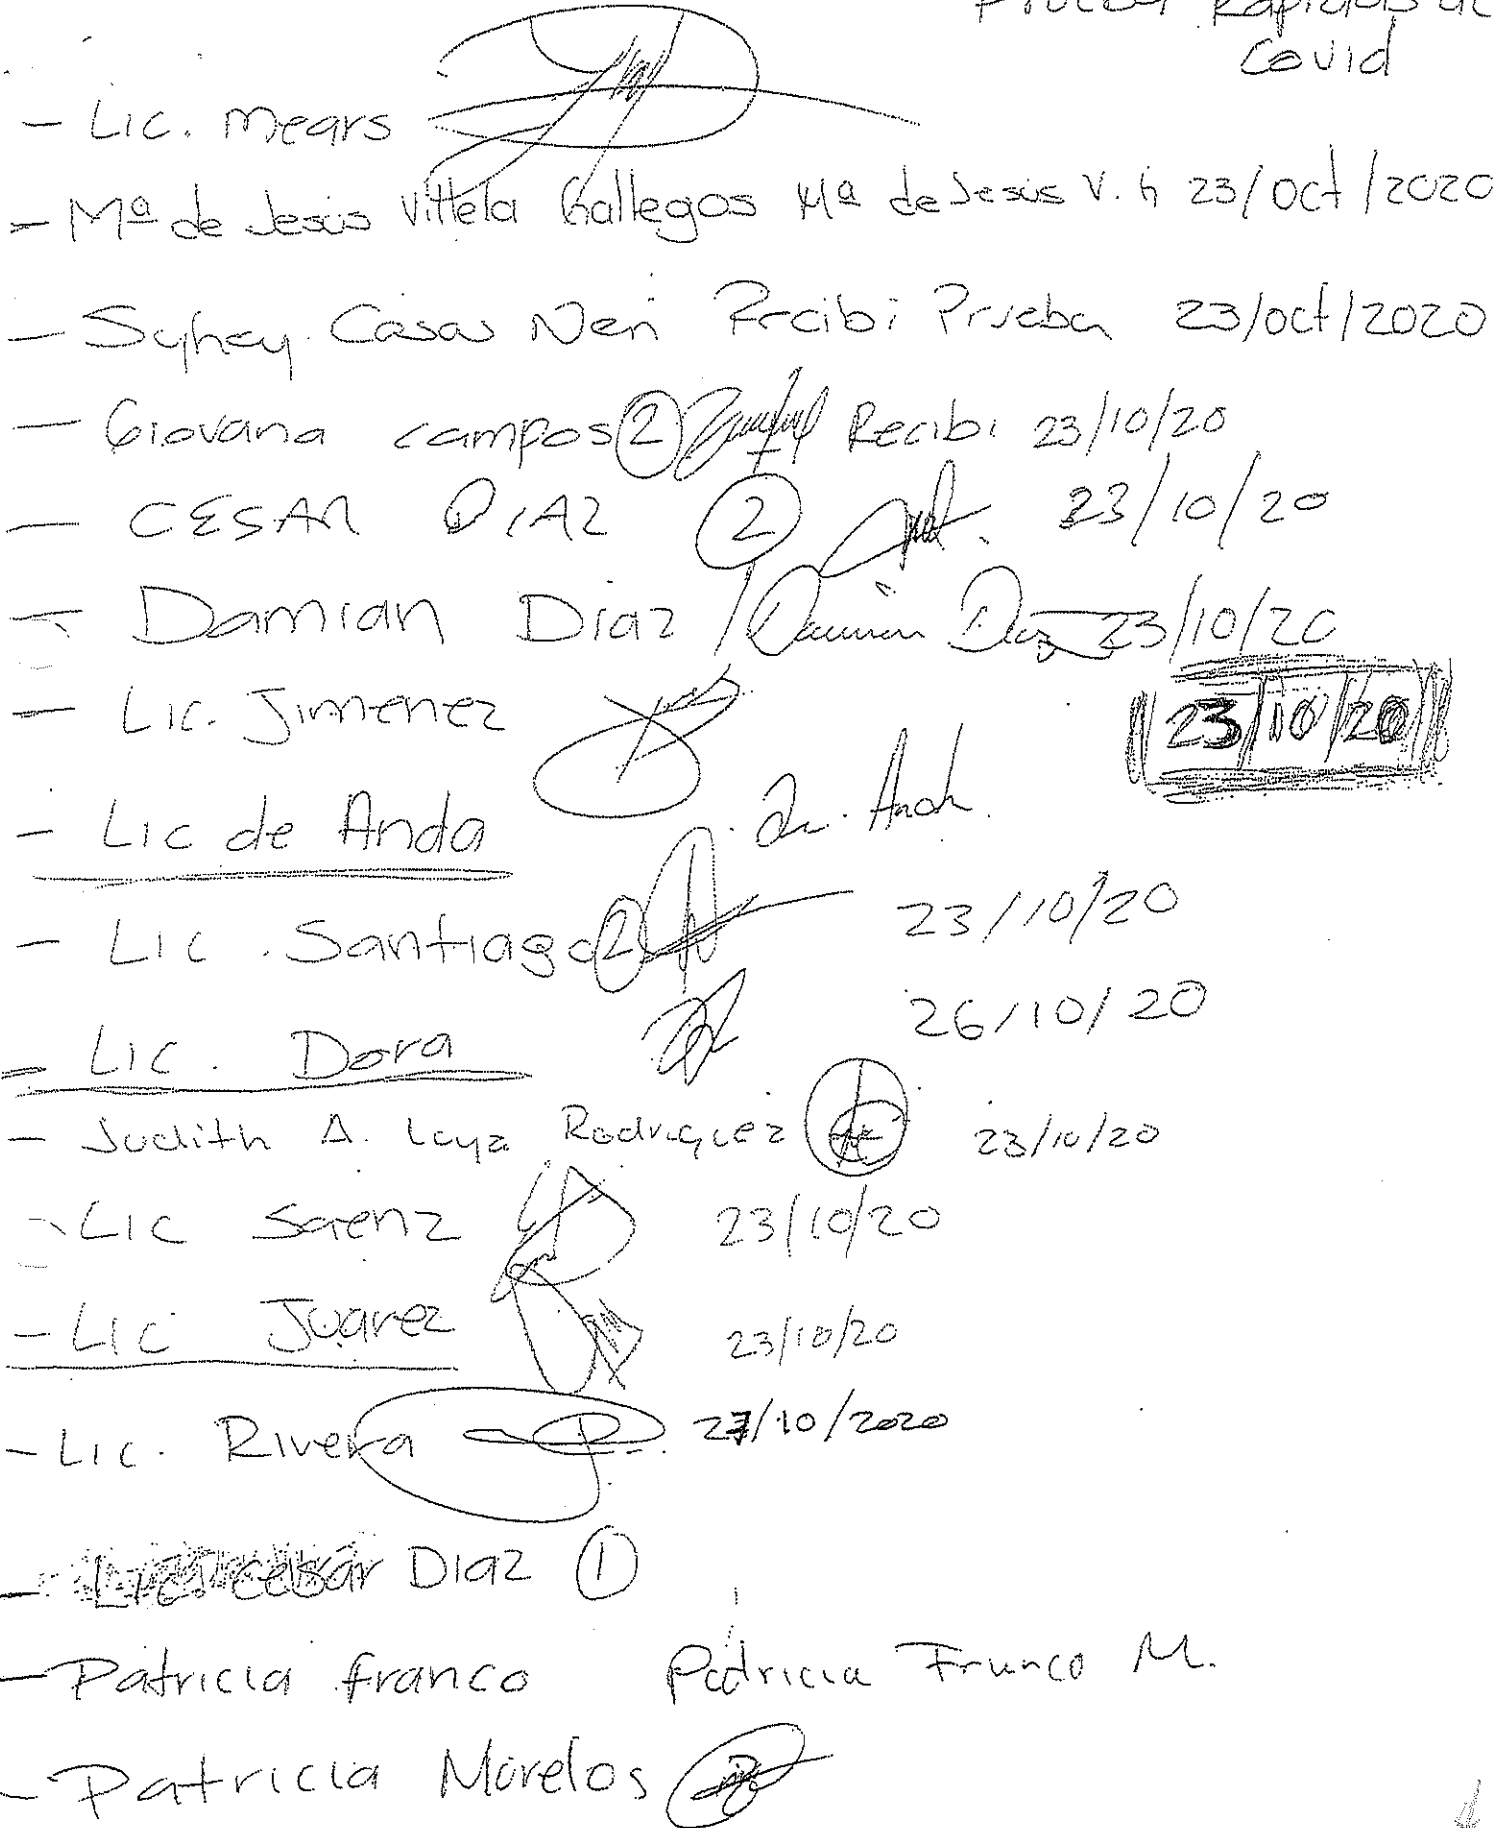 Rapidas de
Covid
- Lic. Mears
- Mª de Jesús Villela Gallegos Mª de Jesús V. G 23/Oct/2020
- Syhey Casas Neri Recibi Prueba 23/oct/2020
- Giovana campos 2 Recibi 23/10/20
- CESAR DIAZ 2 23/10/20
- Damian Diaz / Damián Díaz 23/10/20
- Lic. Jimenez 23/10/20
- Lic de Anda
- Lic. Santiago 2 23/10/20
- Lic. Dora 26/10/20
- Judith A. Loya Rodriguez 23/10/20
- Lic Saenz 23/10/20
- Lic Juarez 23/10/20
- Lic. Rivera 27/10/2020
- Lic. cesar Diaz 1
- Patricia franco Patricia Franco M.
- Patricia Morelos